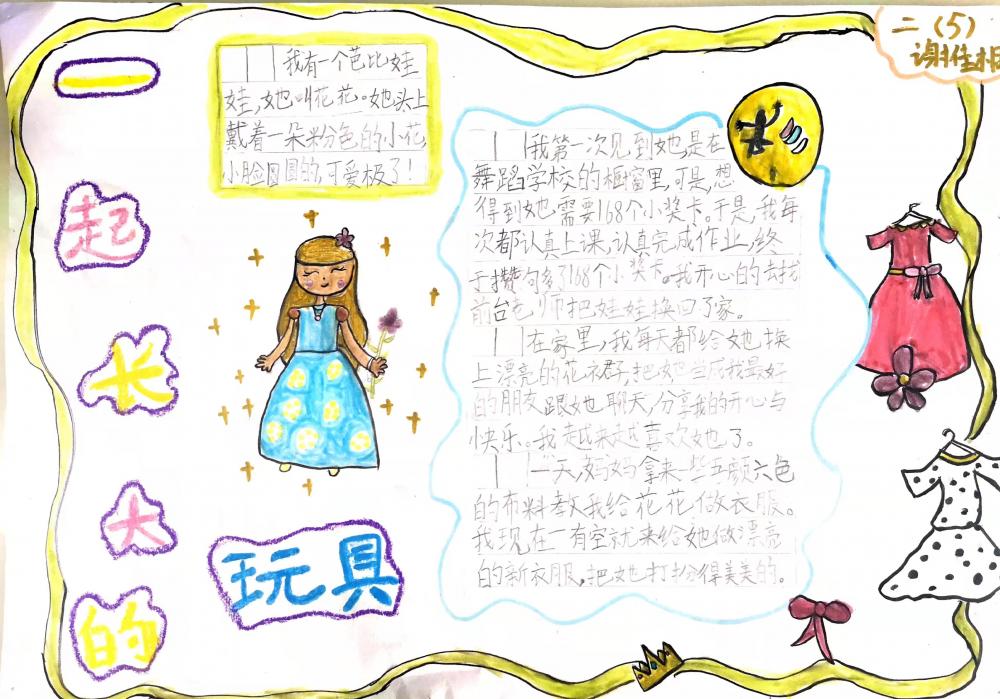 二（5）
谢佳
一
起
长
大
的
玩具
我有一个芭比娃
娃，她叫花花。她头上
戴着一朵粉色的小花，
小脸圆圆的，可爱极了！
我第一次见到她是在
舞蹈学校的橱窗里，可是，想
得到她需要168个小奖卡。于是，我每
次都认真上课，认真完成作业，终
于攒够了168个小奖卡。我开心的找
前台老师把娃娃换回了家。
在家里，我每天都给她换
上漂亮的花衣群，把她当成我最好
的朋友跟她聊天，分享我的开心与
快乐。我越来越喜欢她了。
一天，妈妈拿来一些五颜六色
的布料教我给花花做衣服。
我现在一有空就来给她做漂亮
的新衣服，把她打扮得美美的。